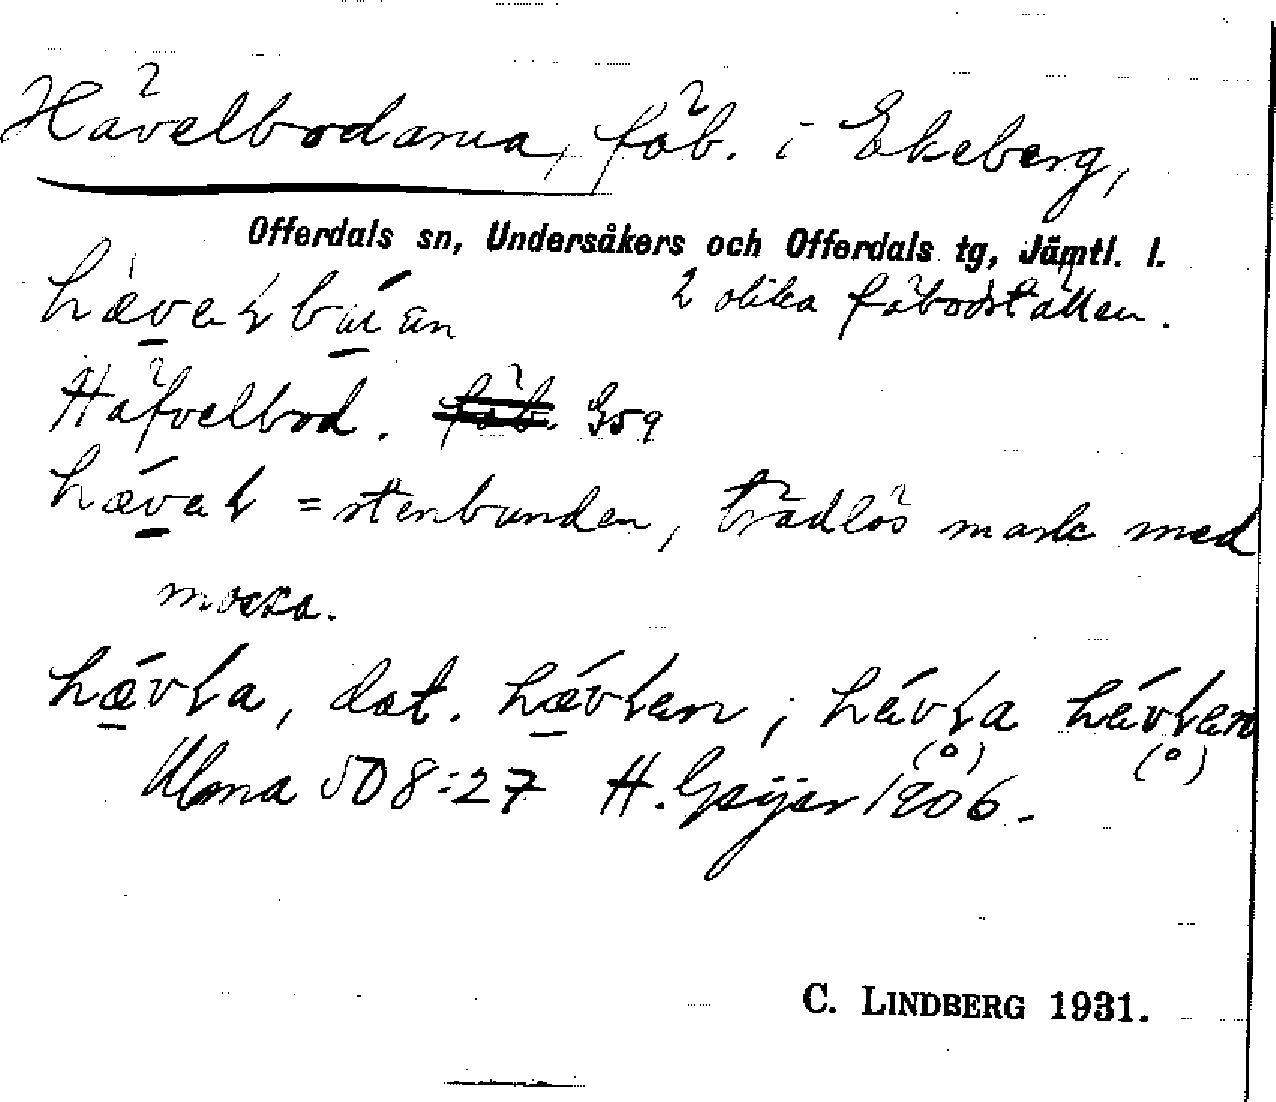 Hävelbodarna, fäb. i Ekeberg,
Offerdals sn, Undersåkers och Offerdals tg, Jämtl. l.
2 olika fäbodställen.
Häfvelbod. fäb. G59
= stenbunden, trädlös mark med
mossa.
dat.
Ulma 508:27 H. Geijer 1906.
C. LINDBERG 1931.